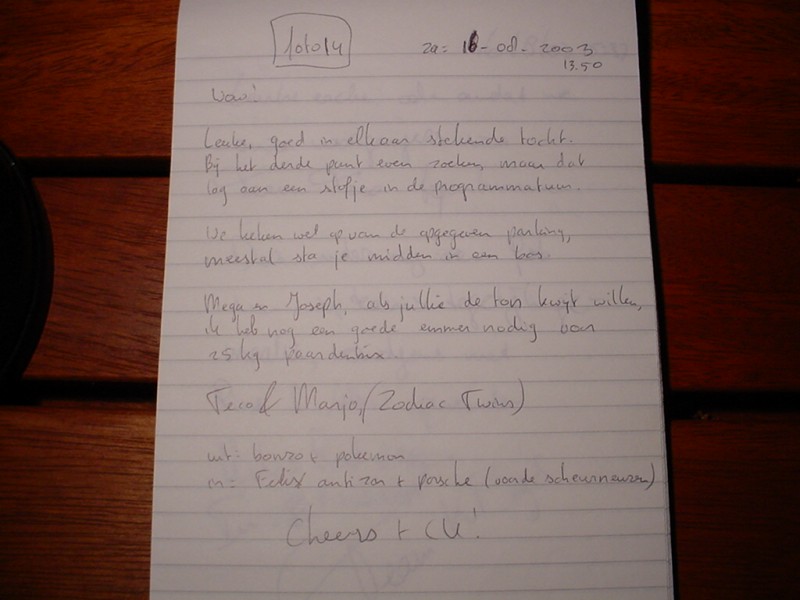 foto 14
za= 16-08-2003
13.50
Wow!
Leuke, goed in elkaar stekende tocht.
Bij het derde punt even zoeken, maar dat
lag aan een stofje in de programmatum.
We keken wel op van de opgegeven parking,
meestal sta je midden in een bos.
Mega en Joseph, als jullie de ton kwijt willen,
ik heb nog een goede emmer nodig van
25 kg paardenbix
Teco & Marjo (Zodiac Twins)
uit= bonzo + pokemon
in= Felix + porsche (voor de scheurneuzen)
Cheers + CU!